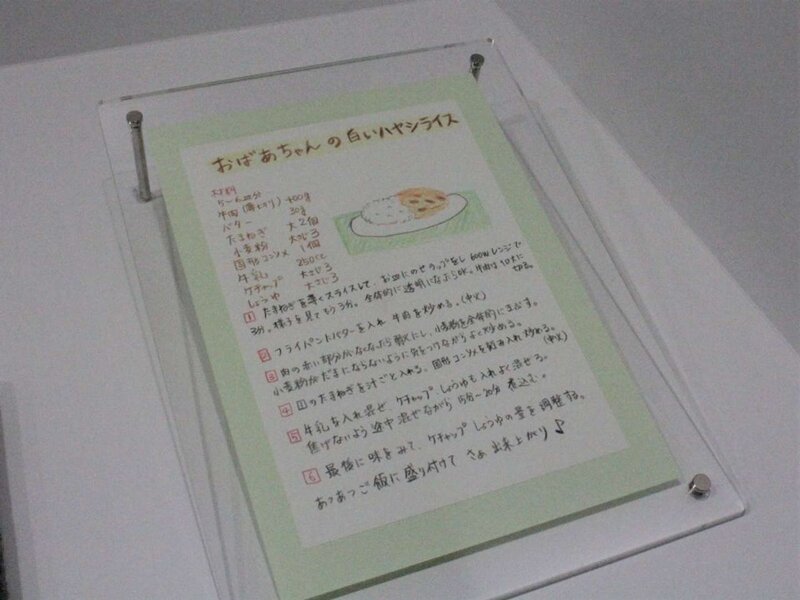 おばあちゃんの白いハヤシライス
材料
5~6皿分
牛肉(薄切り) 400g
バター 30g
たまねぎ 大2個
小麦粉 大さじ3
固形コンソメ 1個
牛乳 250cc
ケチャップ 大さじ3
しょうゆ 大さじ3
1 たまねぎを薄くスライスして、お皿にのせラップをし600Wレンジで
3分。様子を見てもう3分。全体的に透明になったらOK。牛肉は1口大に
切る。
2 フライパンにバターを入れ 牛肉を炒める。(中火)
3 肉の赤い部分がなくなったら弱火にし、小麦粉を全体的にまぶす。
小麦粉がだまにならないように気をつけながらよく炒める。
4 1のたまねぎを汁ごと入れる。固形コンソメを 入れ炒める。
(中火)
5 牛乳を入れ混ぜ、ケチャップ、しょうゆも入れよく混ぜる。
焦げないよう途中混ぜながら 15分~20分 煮込む。
6 最後に味をみて、ケチャップ しょうゆの量を調整する。
あつあつご飯に盛り付けて さぁ 出来上がり♪